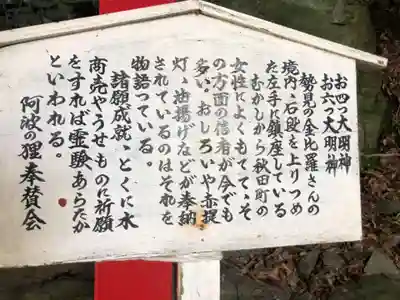 お四つ大明神
お六つ大明神
勢見の金比羅さんの
境内、石段を上りつめ
た左手に鎮座している
むかしから秋田町の
女性によくもてて、そ
の方面の信者が今でも
多い、おしろいや赤提
灯、油揚げなどが奉納
されているのはそれを
物語っている。
諸願成就、とくに水
商売やうせものに祈願
をすれば霊験あらたか
といわれる。
阿波の狸奉賛会